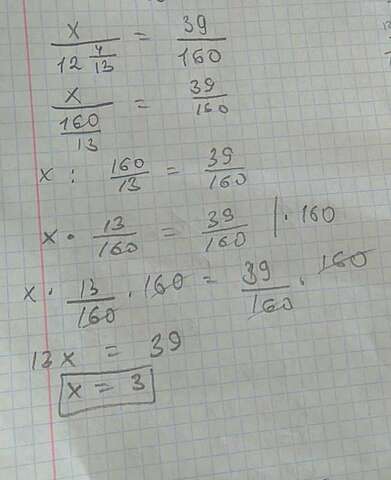 x / 12 4/13 = 39/160
x / 160/13 = 39/160
x : 160/13 = 39/160
x · 13/160 = 39/160 | · 160
x · 13/160 · 160 = 39/160 · 160
13x = 39
x = 3